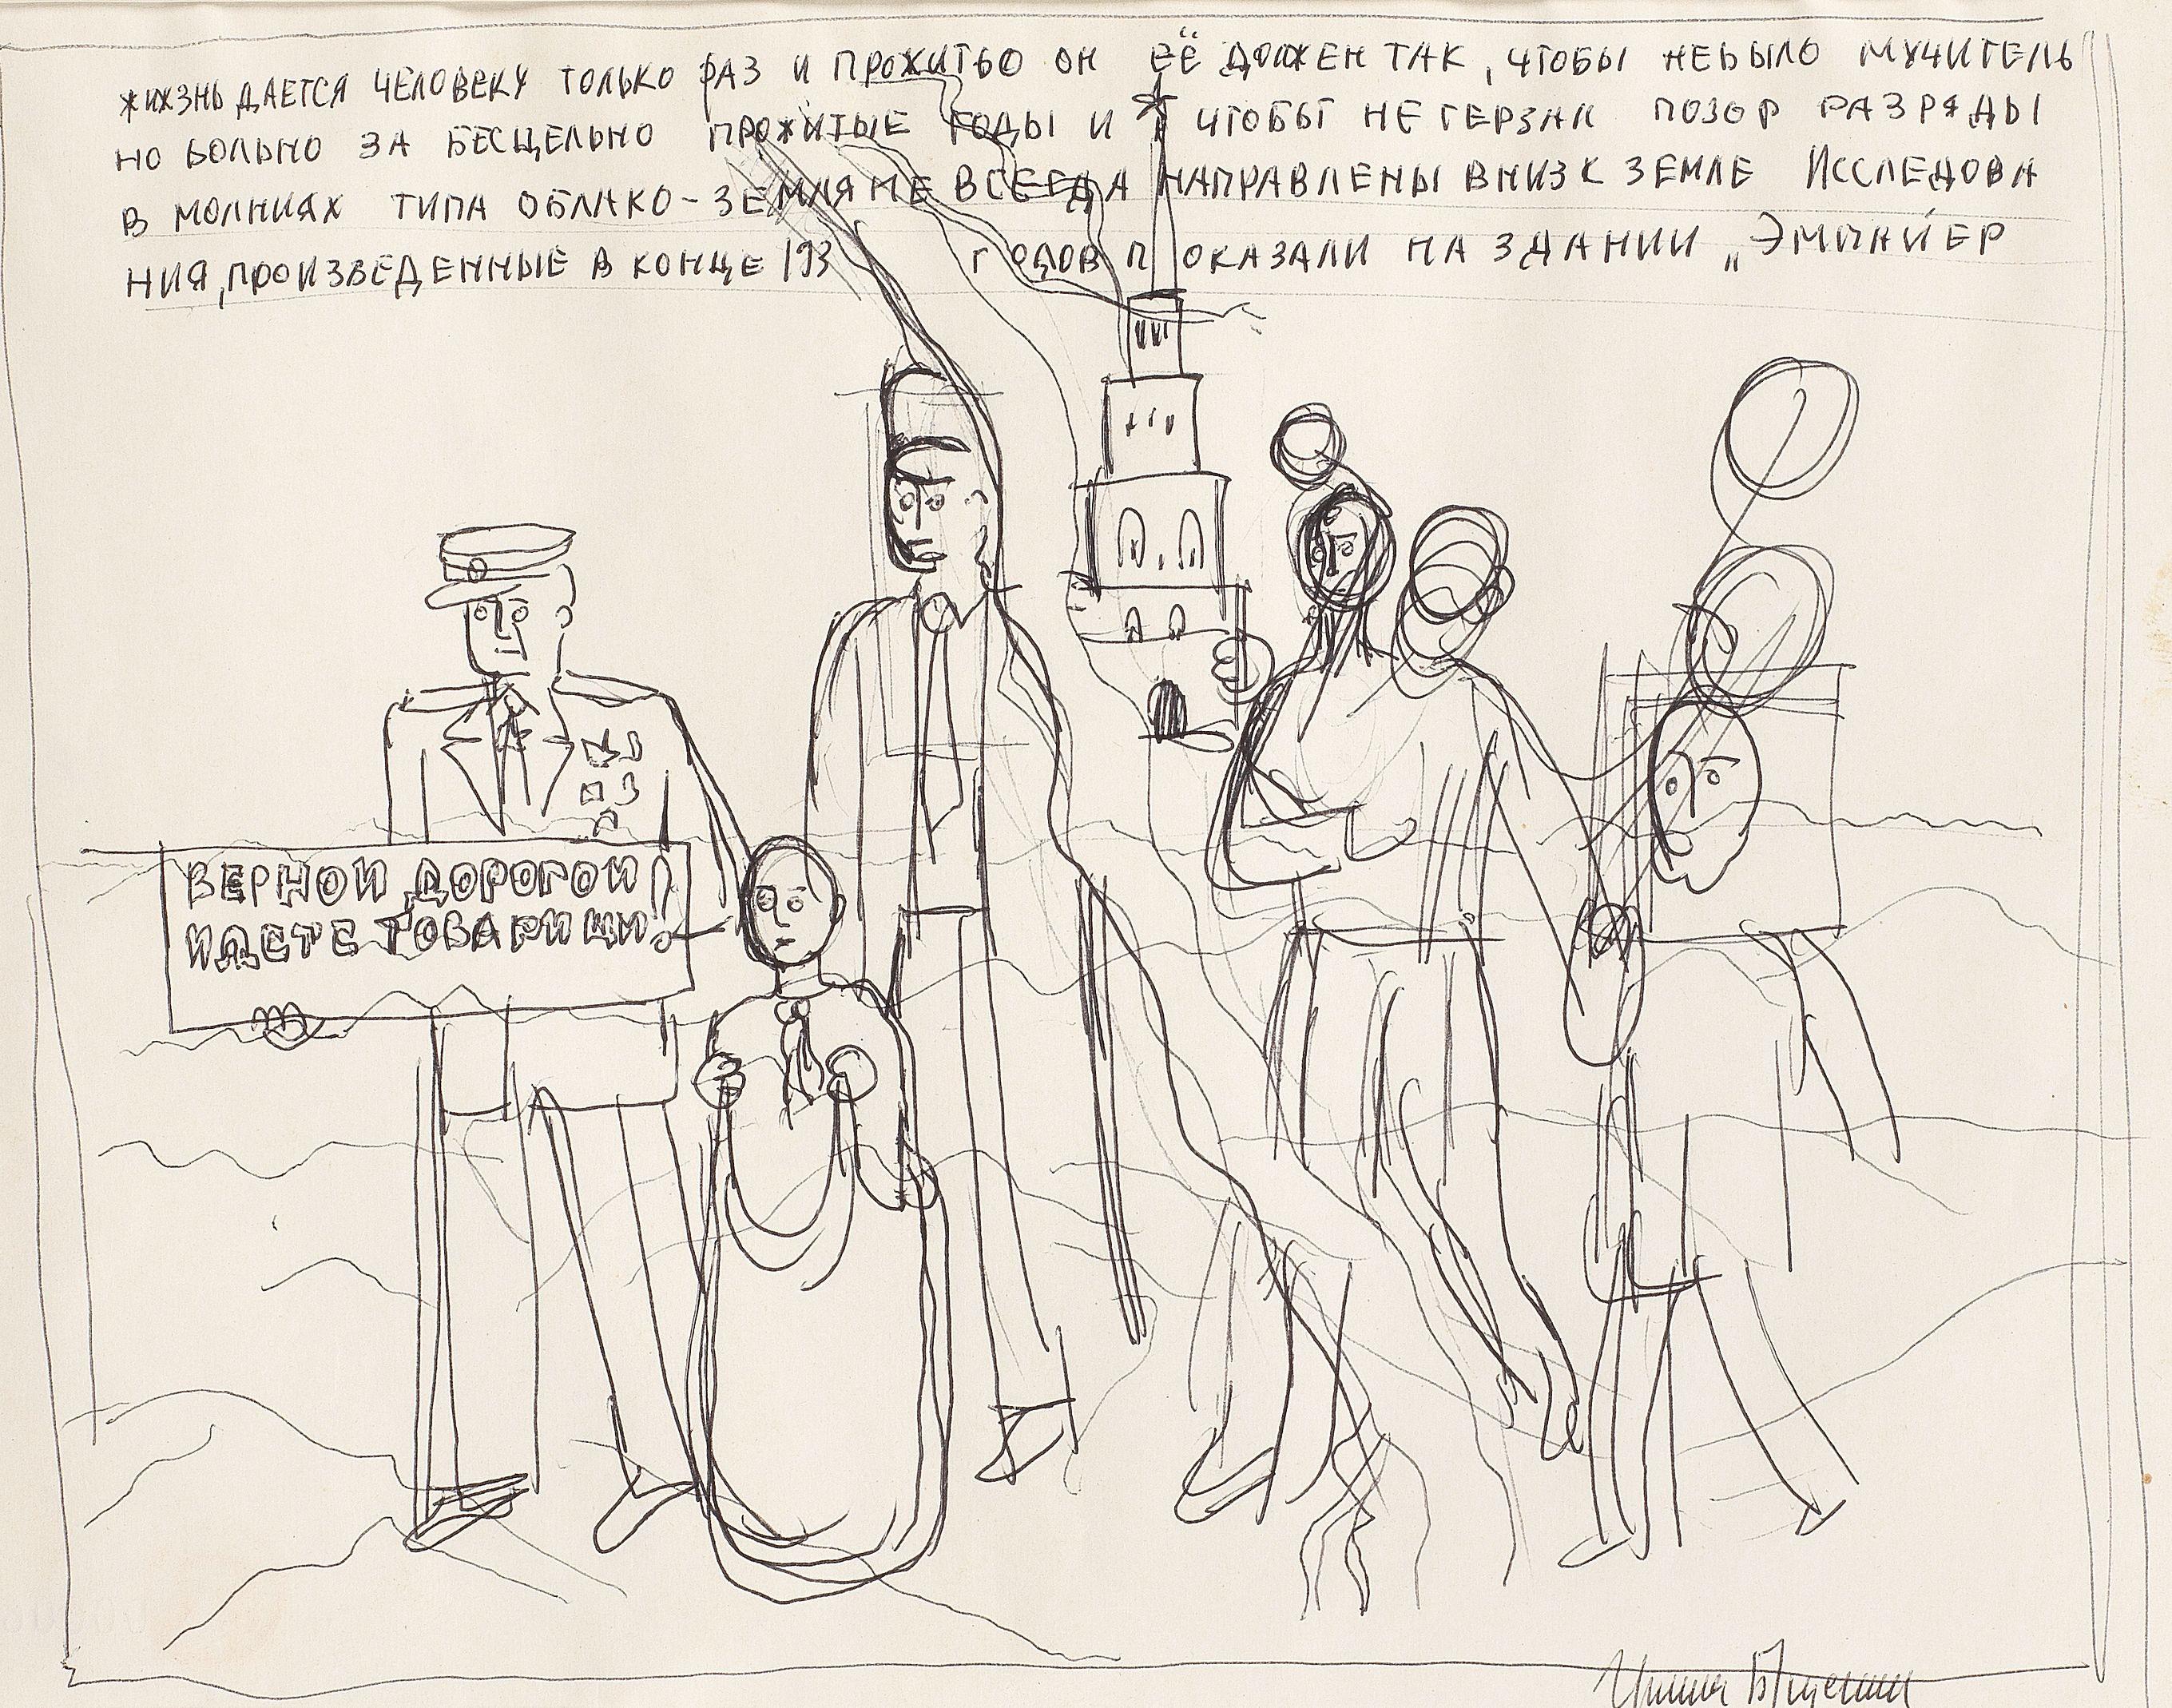 ЖИЗНЬ ДАЕТСЯ ЧЕЛОВЕКУ ТОЛЬКО РАЗ И ПРОЖИТЬ ОН ЕЁ ДОЛЖЕН ТАК, ЧТОБЫ НЕ БЫЛО МУЧИТЕЛЬ
НО БОЛЬНО ЗА БЕСЦЕЛЬНО ПРОЖИТЫЕ ГОДЫ И ЧТОБЫ НЕ ТЕРЗАЛ ПОЗОР РАЗРЯДЫ
В МОЛНИЯХ ТИПА ОБЛАКО-ЗЕМЛЯ НЕ ВСЕГДА НАПРАВЛЕНЫ ВНИЗ К ЗЕМЛЕ ИССЛЕДОВА
НИЯ, ПРОИЗВЕДЕННЫЕ В КОНЦЕ 193 ГОДОВ ПОКАЗАЛИ НА ЗДАНИИ „ЭМПАЙЕР
ВЕРНОЙ ДОРОГОЙ
ИДЕТЕ ТОВАРИЩИ!